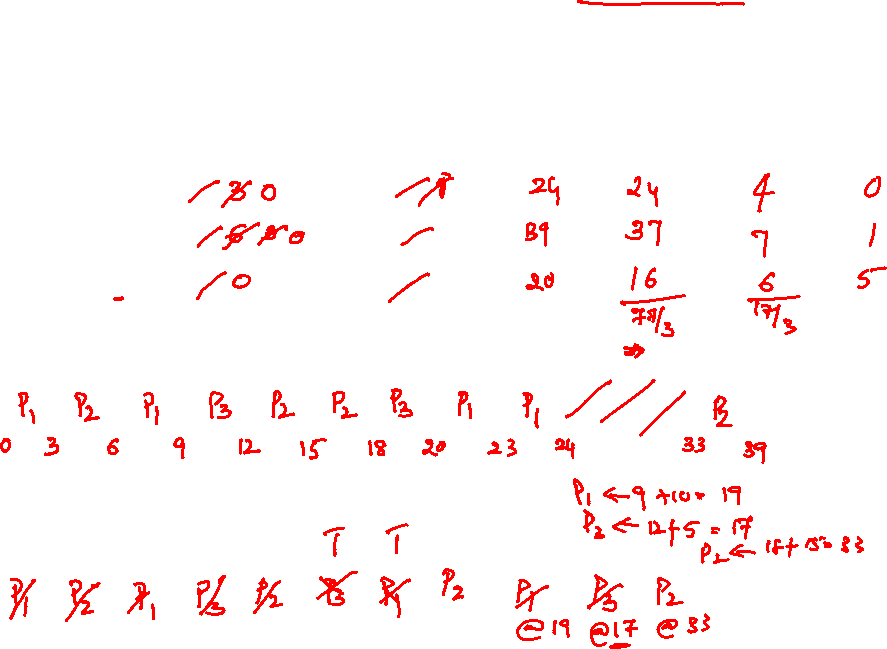 0 24 24 4 0
0 39 37 7 1
0 20 16 6 5
77/3 17/3
P1 P2 P1 P3 P2 P2 P3 P1 P1 P2
0 3 6 9 12 15 18 20 23 24 33 39
P1 ← 9 + 10 = 19
P3 ← 12 + 5 = 17
P2 ← 18 + 15 = 33
T T
P1 P2 P1 P3 P2 P3 P1 P2 P1 P3 P2
@ 19 @ 17 @ 33